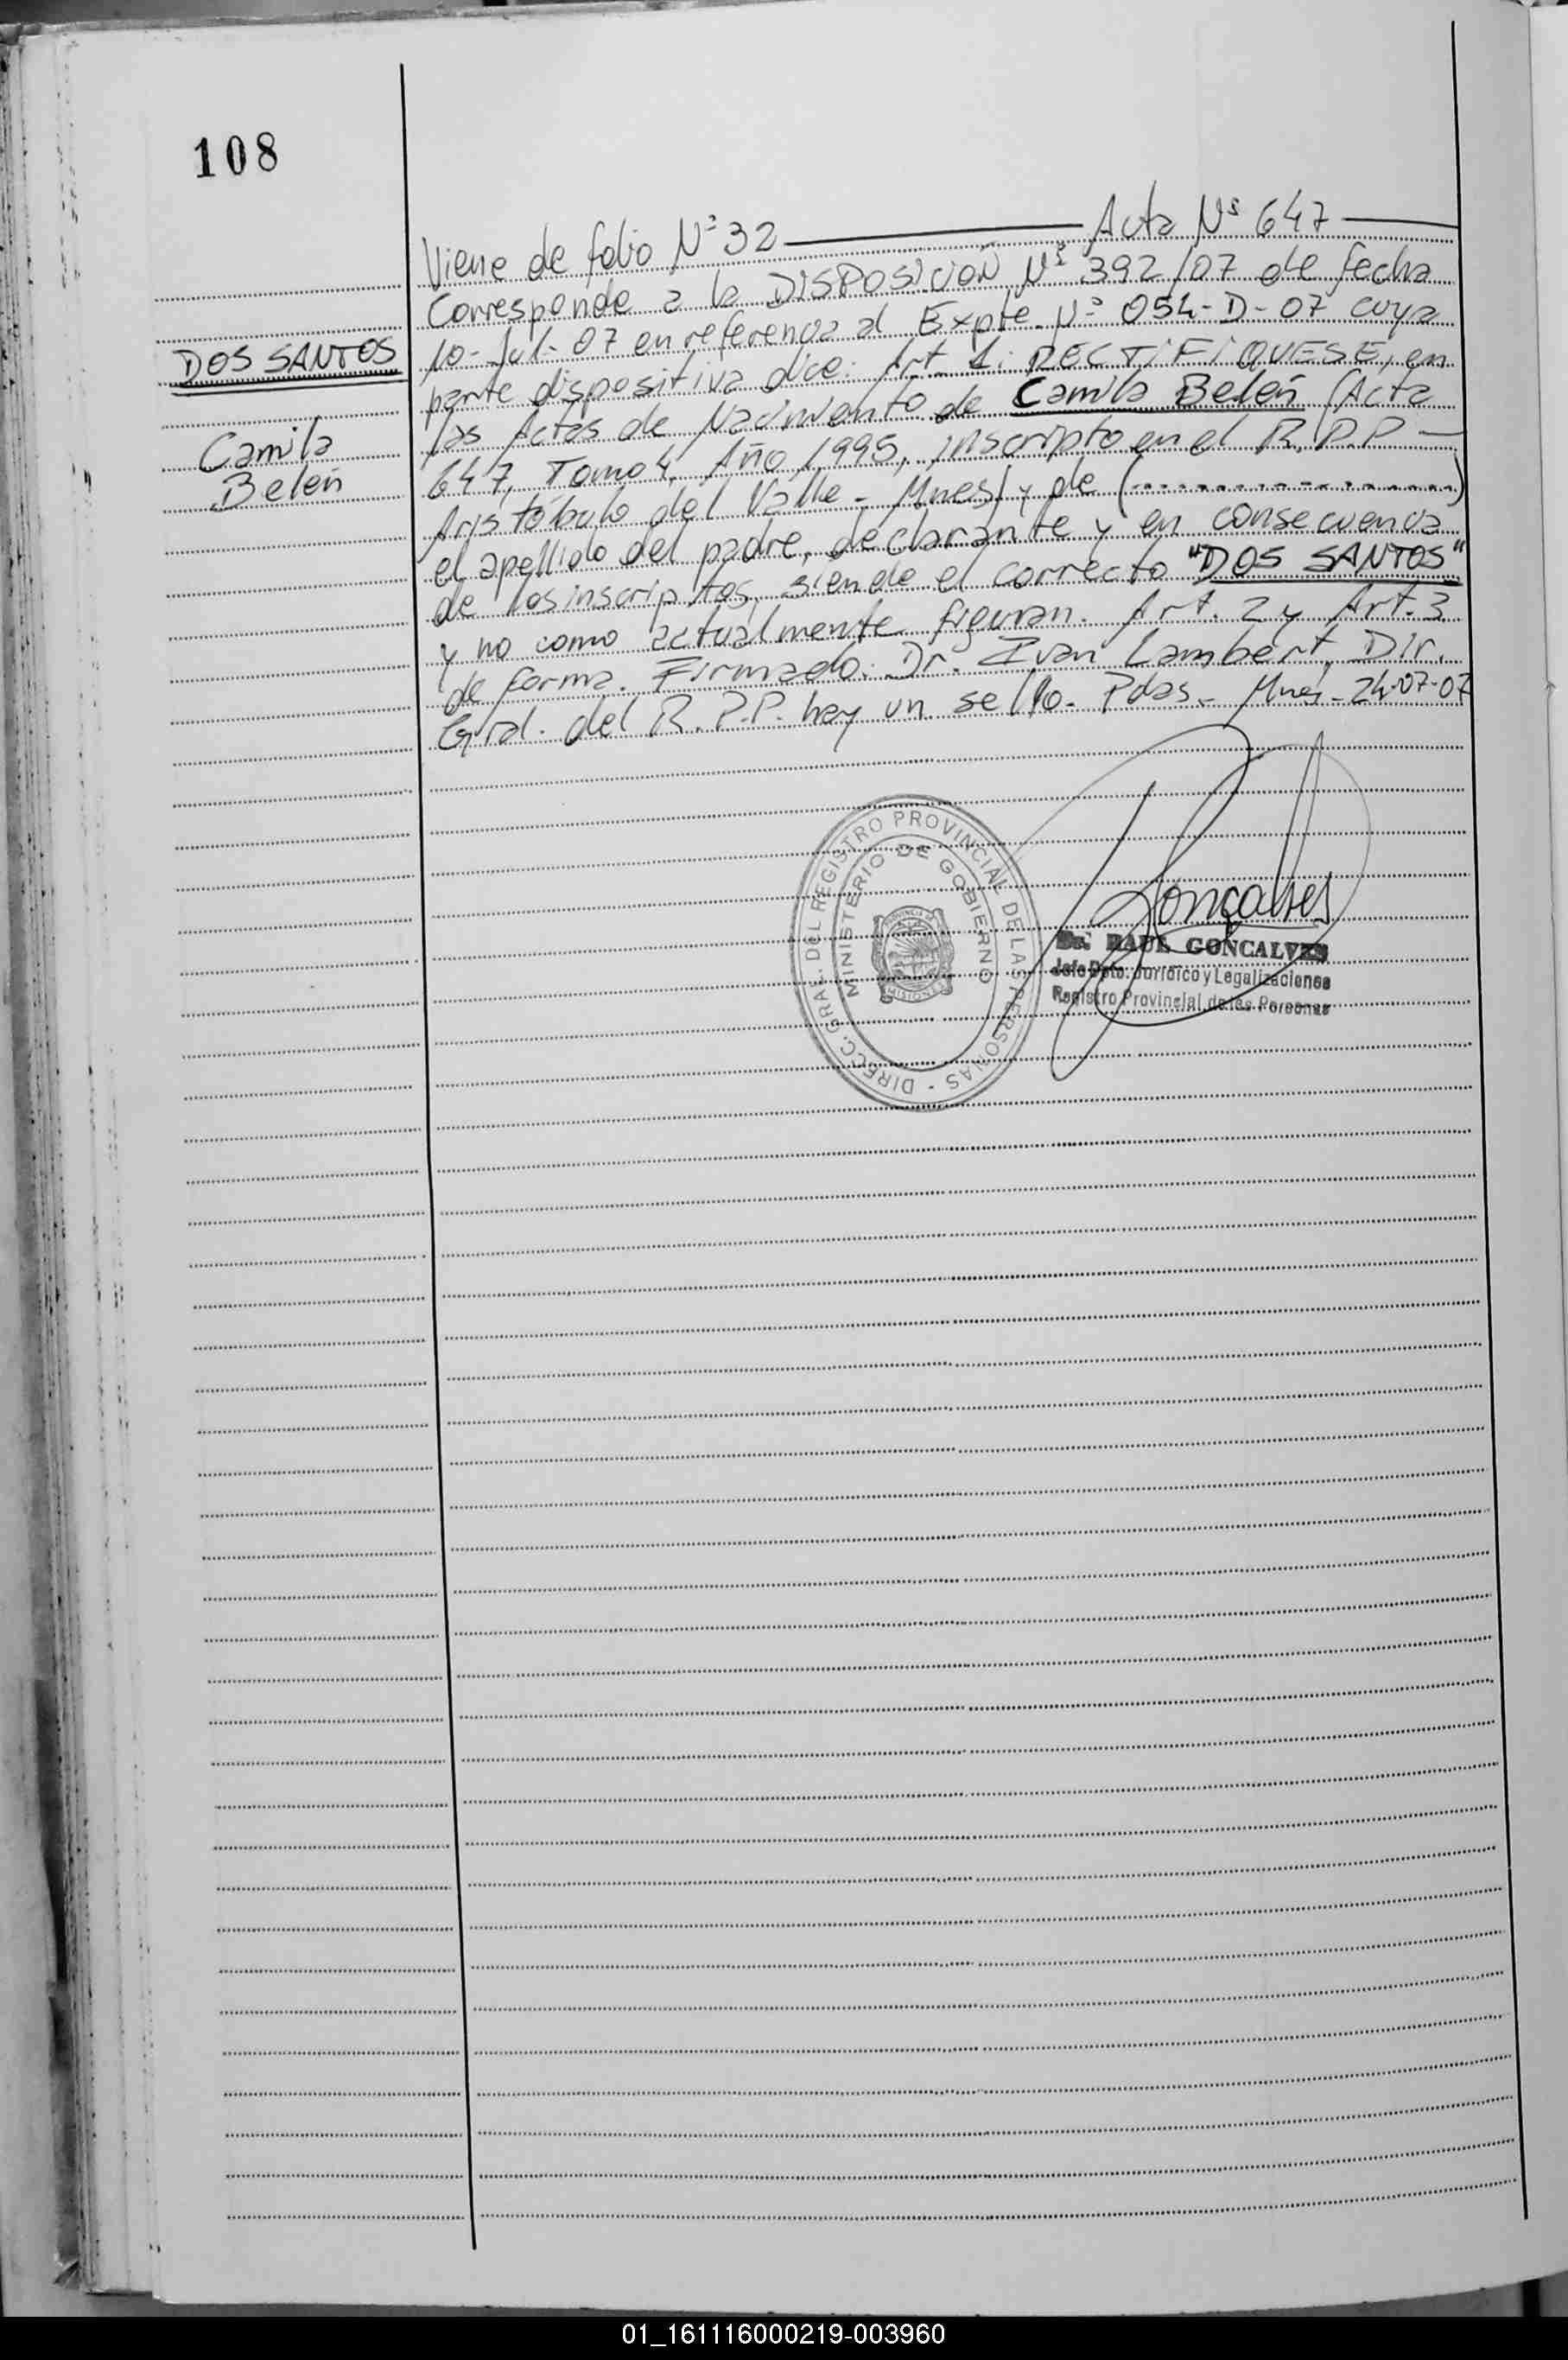 108
Viene de folio Nº 32 — Acta Nº 647 —
Corresponde a la DISPOSICION Nº 392/07 de fecha
10-Jul-07 en referencia al Expte Nº 054-D-07 cuya
parte dispositiva dice: Art 1: RECTIFIQUESE, en
las Actas de Nacimiento de Camila Belén (Acta
647, Tomo 4, Año 1995, inscripto en el R.P.P —
Aristóbulo del Valle - Mnes) y de (....................)
el apellido del padre, declarante y en consecuencia
de los inscriptos, siendo el correcto "DOS SANTOS"
y no como actualmente figuran. Art. 2 y Art. 3
de forma. Firmado: Dr. Ivan Lambert, Dir.
Gral. del R.P.P. hay un sello. Pdas - Mnes - 24-07-07
DOS SANTOS
Camila
Belén
DIRECC. GRAL. DEL REGISTRO PROVINCIAL DE LAS PERSONAS -
MINISTERIO DE GOBIERNO
PROVINCIA DE
MISIONES
Goncalves
Dr. RAUL GONCALVES
Jefe Dpto. Jurídico y Legalizaciones
Registro Provincial de las Personas
01_161116000219-003960